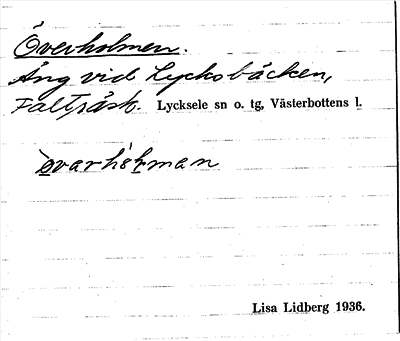 Överholmen.
Äng vid Lycksbäcken,
Falträsk. Lycksele sn o. tg, Västerbottens l.
Lisa Lidberg 1936.